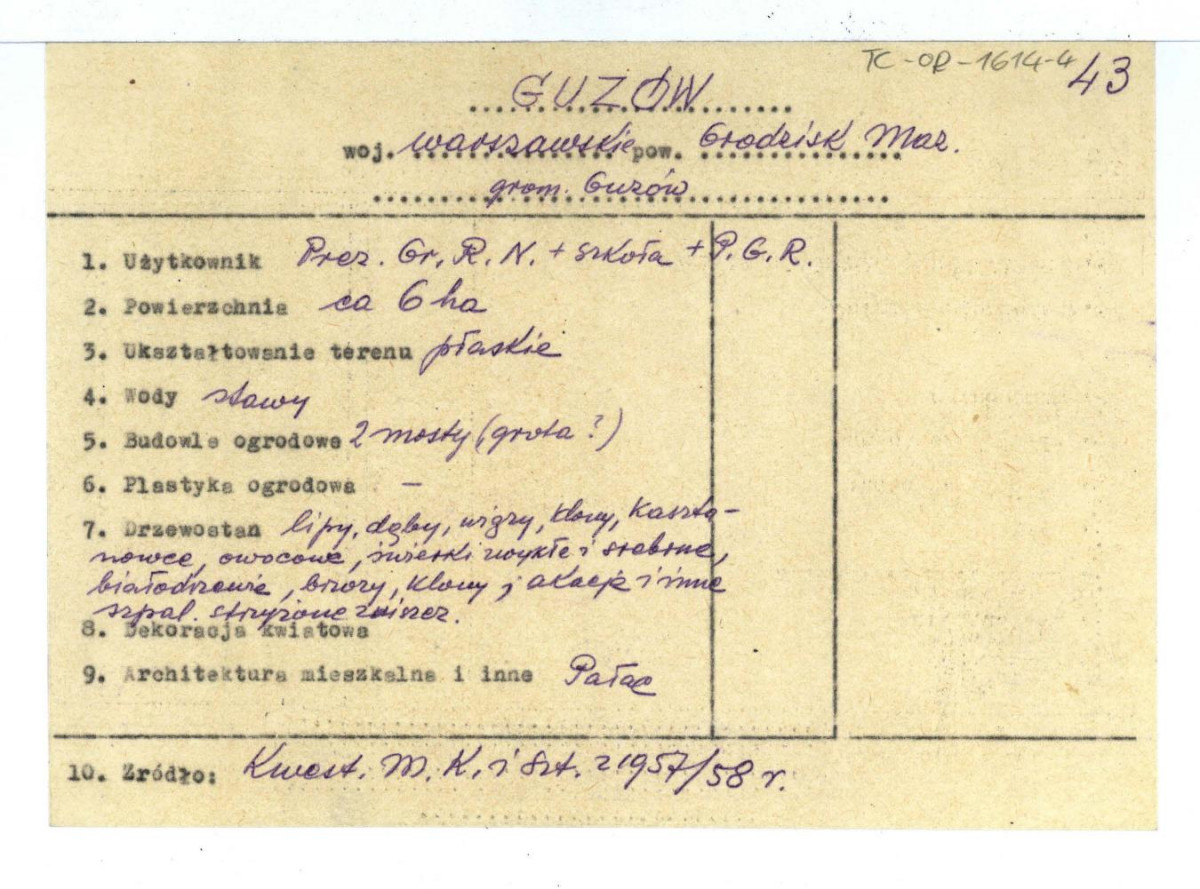 TC-OP-1614-4
43
GUZÓW
woj. warszawskie pow. Grodzisk Maz.
grom. Guzów
1. Użytkownik Prez. Gr. R. N. + szkoła + P. G. R.
2. Powierzchnia ca 6 ha
3. Ukształtowanie terenu płaskie
4. Wody stawy
5. Budowle ogrodowe 2 mosty (grota?)
6. Plastyka ogrodowa —
7. Drzewostan lipy, dęby, wiązy, klony, kaszta-
nowce, owocowe, świerki zwykłe i srebrne,
białodrzewie, brzozy, klony, akacje i inne
szpal. strzyżone zniszcz.
8. Dekoracja kwiatowa
9. Architektura mieszkalna i inne Pałac
10. Zródło: Kwest. M. K. i Szt. z 1957/58 r.